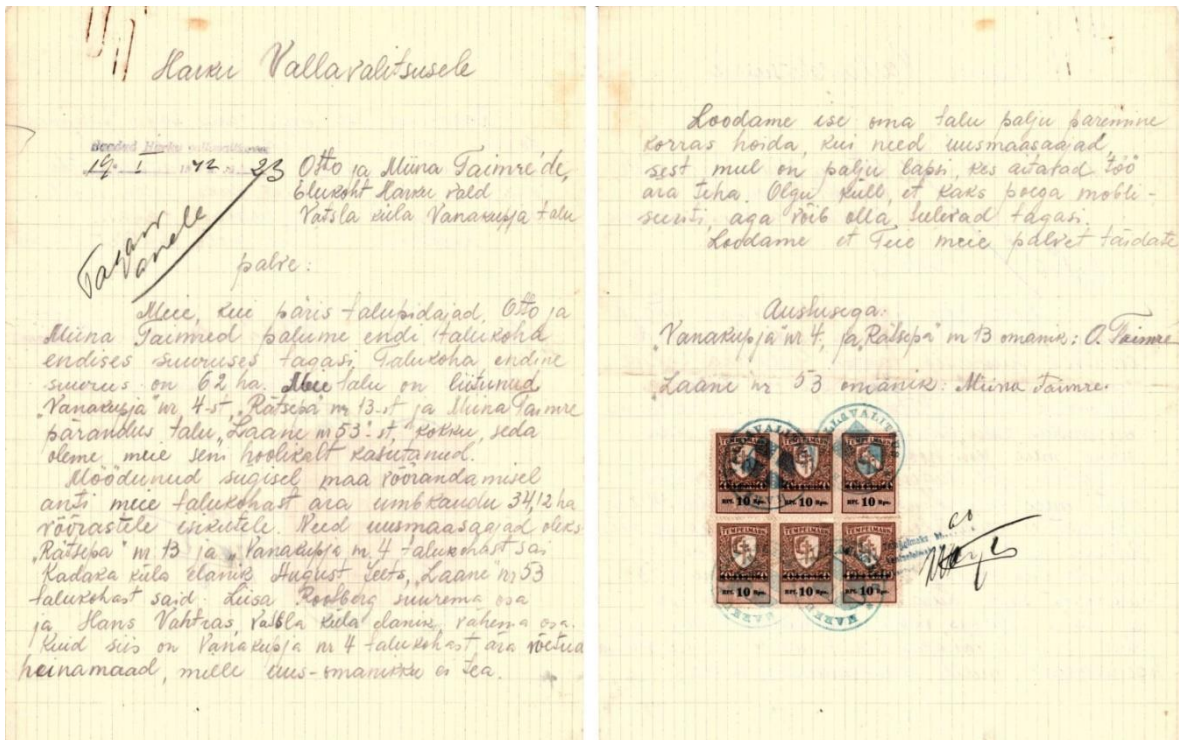 Harku Vallavalitsusele
19. I 42 23
Otto ja Miina Taimre'de,
Elukoht Harku vald
Vatsla küla Vanakupja talu
palve:
Meie, kui päris talupidajad, Otto ja
Miina Taimred palume endi talukoha
endises suuruses tagasi. Talukoha endine
suurus on 62 ha. Meie talu on liitunud
"Vanakupja" nr. 4-st, "Rätsepa" nr 13-st ja Miina Taimre
pärandus talu "Laane nr 53"-st, kokku, seda
oleme meie seni hoolikalt kasutanud.
Möödunud sügisel maa võõrandamisel
anti meie talukohast ära umbkaudu 34,12 ha
võõrastele isikutele. Need uusmaasaajad oleks
"Rätsepa" nr. 13 ja "Vanakupja nr. 4 talukohast sai
Kadaka küla elanik August Leets, "Laane" nr 53
talukohast said Liisa Roolberg suurema osa
ja Hans Vahtras, Vatsla küla elanik, vähema osa.
Kuid siis on Vanakupja nr 4 talukohast ära võetud
heinamaad, mille uus-omanikku ei tea.
Loodame ise oma talu palju paremine
korras hoida, kui need uusmaasaajad,
sest mul on palju lapsi, kes aitavad töö
ära teha. Olgu küll, et kaks poega mobli-
seeriti, aga võib olla, tulevad tagasi.
Loodame et Teie meie palvet täidate
Austusega:
"Vanakupja" nr 4, ja "Rätsepa" nr 13 omanik: O. Taimre
Laane nr 53 omanik: Miina Taimre.
TEMPELMARK TEMPELMARK TEMPELMARK
RPf. 10 Rpn. RPf. 10 Rpn. RPf. 10 Rpn.
TEMPELMARK TEMPELMARK TEMPELMARK
RPf. 10 Rpn. RPf. 10 Rpn. RPf. 10 Rpn.